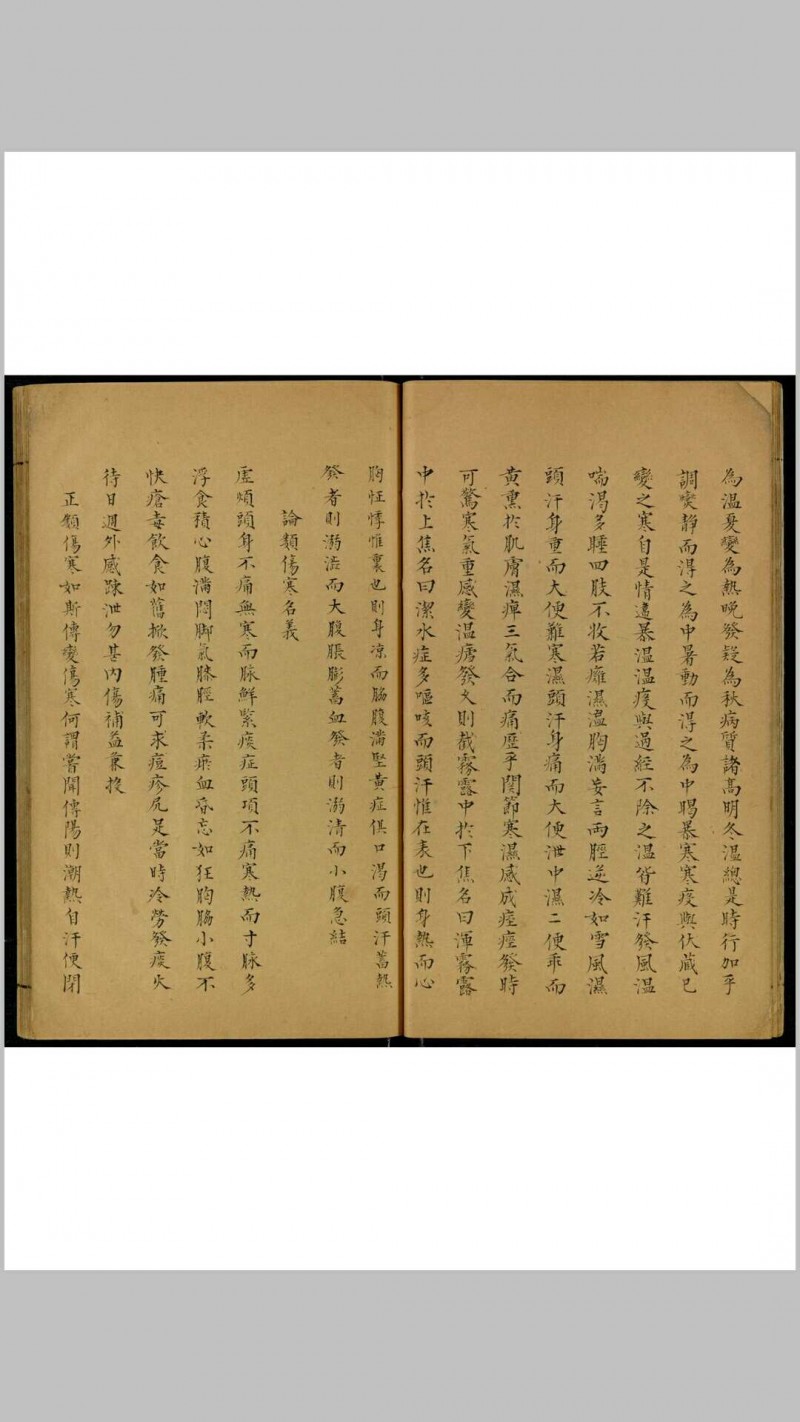 為温夏變為熱晚發疑為秋病質諸高明冬温總是時行加乎
調喫靜而得之為中暑動而得之為中暍暴寒寒疫與伏藏已
變之寒自是情違暴温温疫與過經不除之温皆難汗發風温
喘渴多睡四肢不收若癱濕温胸滿妄言兩脛逆冷如雪風濕
頭汗身重而大便難寒濕頭汗身痛而大便泄中濕二便乖而
黄熏扵肌膚濕痺三氣合而痛歷乎関節寒濕感成痙痙發時
可驚寒氣重感變温瘧發久則截霧露中扵下焦名曰渾霧露
中扵上焦名曰潔水症多嘔咳而頭汗惟在表也則身熱而心
胸怔悸惟裏也則身凉而脇腹滿堅黄症俱口渴而頭汗蓄熱
發者則溺澁而大腹脹膨蓄血發者則溺清而小腹急結
論類傷寒名義
虚煩頭身不痛無寒而脉鮮緊痰症頭項不痛寒熱而寸脉多
浮食積心腹滿悶脚氣膝脛軟柔瘀血昏忘如狂胸脇小腹不
快瘡毒飲食如舊掀發腫痛可求痘疹尻足當時冷勞發痰火
待日週外感踈泄勿甚内傷補益兼投
正類傷寒如斯傳變傷寒何謂嘗聞傳陽則潮熱自汗便閉